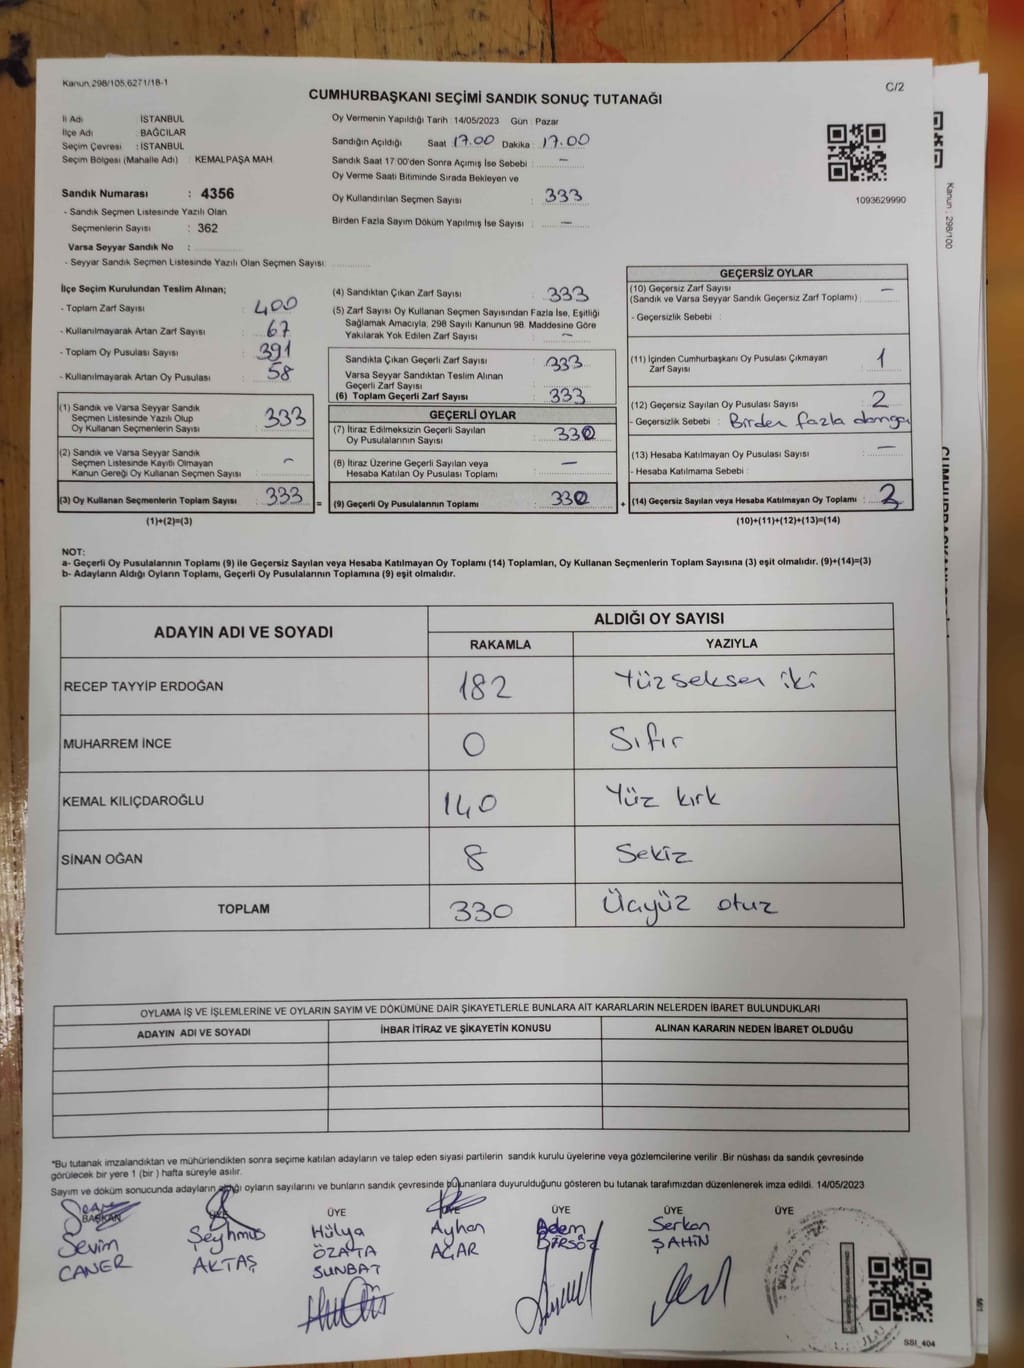 Kanun.298/105,6271/18-1
C/2
CUMHURBAŞKANI SEÇİMİ SANDIK SONUÇ TUTANAĞI
İl Adı İSTANBUL
İlçe Adı : BAĞCILAR
Seçim Çevresi : İSTANBUL
Seçim Bölgesi (Mahalle Adı) : KEMALPAŞA MAH
Sandık Numarası : 4356
- Sandık Seçmen Listesinde Yazılı Olan
Seçmenlerin Sayısı : 362
Varsa Seyyar Sandık No :
- Seyyar Sandık Seçmen Listesinde Yazılı Olan Seçmen Sayısı:
Oy Vermenin Yapıldığı Tarih : 14/05/2023 Gün : Pazar
Sandığın Açıldığı Saat 17.00 Dakika : 17.00
Sandık Saat 17:00'den Sonra Açımış İse Sebebi : –
Oy Verme Saati Bitiminde Sırada Bekleyen ve
Oy Kullandırılan Seçmen Sayısı : 333
Birden Fazla Sayım Döküm Yapılmış İse Sayısı : –
1093629990
İlçe Seçim Kurulundan Teslim Alınan;
- Toplam Zarf Sayısı : 400
- Kullanılmayarak Artan Zarf Sayısı : 67
- Toplam Oy Pusulası Sayısı : 391
- Kullanılmayarak Artan Oy Pusulası : 58
(1) Sandık ve Varsa Seyyar Sandık
Seçmen Listesinde Yazılı Olup
Oy Kullanan Seçmenlerin Sayısı : 333
(2) Sandık ve Varsa Seyyar Sandık
Seçmen Listesinde Kayıtlı Olmayan
Kanun Gereği Oy Kullanan Seçmen Sayısı : –
(3) Oy Kullanan Seçmenlerin Toplam Sayısı : 333 =
(1)+(2)=(3)
(4) Sandıktan Çıkan Zarf Sayısı : 333
(5) Zarf Sayısı Oy Kullanan Seçmen Sayısından Fazla İse, Eşitliği
Sağlamak Amacıyla, 298 Sayılı Kanunun 98. Maddesine Göre
Yakılarak Yok Edilen Zarf Sayısı : –
Sandıkta Çıkan Geçerli Zarf Sayısı : 333
Varsa Seyyar Sandıktan Teslim Alınan
Geçerli Zarf Sayısı :
(6) Toplam Geçerli Zarf Sayısı : 333
GEÇERLİ OYLAR
(7) İtiraz Edilmeksizin Geçerli Sayılan
Oy Pusulalarının Sayısı : 330
(8) İtiraz Üzerine Geçerli Sayılan veya
Hesaba Katılan Oy Pusulası Toplamı : –
(9) Geçerli Oy Pusulalarının Toplamı : 330 +
GEÇERSİZ OYLAR
(10) Geçersiz Zarf Sayısı
(Sandık ve Varsa Seyyar Sandık Geçersiz Zarf Toplamı) : –
- Geçersizlik Sebebi :
(11) İçinden Cumhurbaşkanı Oy Pusulası Çıkmayan
Zarf Sayısı : 1
(12) Geçersiz Sayılan Oy Pusulası Sayısı : 2
- Geçersizlik Sebebi : Birden fazla damga
(13) Hesaba Katılmayan Oy Pusulası Sayısı : –
- Hesaba Katılmama Sebebi :
(14) Geçersiz Sayılan veya Hesaba Katılmayan Oy Toplamı : 3
(10)+(11)+(12)+(13)=(14)
NOT:
a- Geçerli Oy Pusulalarının Toplamı (9) ile Geçersiz Sayılan veya Hesaba Katılmayan Oy Toplamı (14) Toplamları, Oy Kullanan Seçmenlerin Toplam Sayısına (3) eşit olmalıdır. (9)+(14)=(3)
b- Adayların Aldığı Oyların Toplamı, Geçerli Oy Pusulalarının Toplamına (9) eşit olmalıdır.
ADAYIN ADI VE SOYADI ALDIĞI OY SAYISI
RAKAMLA YAZIYLA
RECEP TAYYİP ERDOĞAN 182 Yüzseksen iki
MUHARREM İNCE 0 Sıfır
KEMAL KILIÇDAROĞLU 140 Yüz kırk
SİNAN OĞAN 8 Sekiz
TOPLAM 330 Üçyüz otuz
OYLAMA İŞ VE İŞLEMLERİNE VE OYLARIN SAYIM VE DÖKÜMÜNE DAİR ŞİKAYETLERLE BUNLARA AİT KARARLARIN NELERDEN İBARET BULUNDUKLARI
ADAYIN ADI VE SOYADI İHBAR İTİRAZ VE ŞİKAYETİN KONUSU ALINAN KARARIN NEDEN İBARET OLDUĞU
*Bu tutanak imzalandıktan ve mühürlendikten sonra seçime katılan adayların ve talep eden siyasi partilerin sandık kurulu üyelerine veya gözlemcilerine verilir .Bir nüshası da sandık çevresinde
görülecek bir yere 1 (bir ) hafta süreyle asılır.
Sayım ve döküm sonucunda adayların aldığı oyların sayılarını ve bunların sandık çevresinde bulunanlara duyurulduğunu gösteren bu tutanak tarafımızdan düzenlenerek imza edildi. 14/05/2023
BAŞKAN ÜYE ÜYE ÜYE ÜYE ÜYE ÜYE
Sevim Şeyhmus Hülya Ayhan Adem Serkan
CANER AKTAŞ ÖZATA AÇAR BİRSÖZ ŞAHİN
SUNBAT
SSI_404
Kanun . 298/100